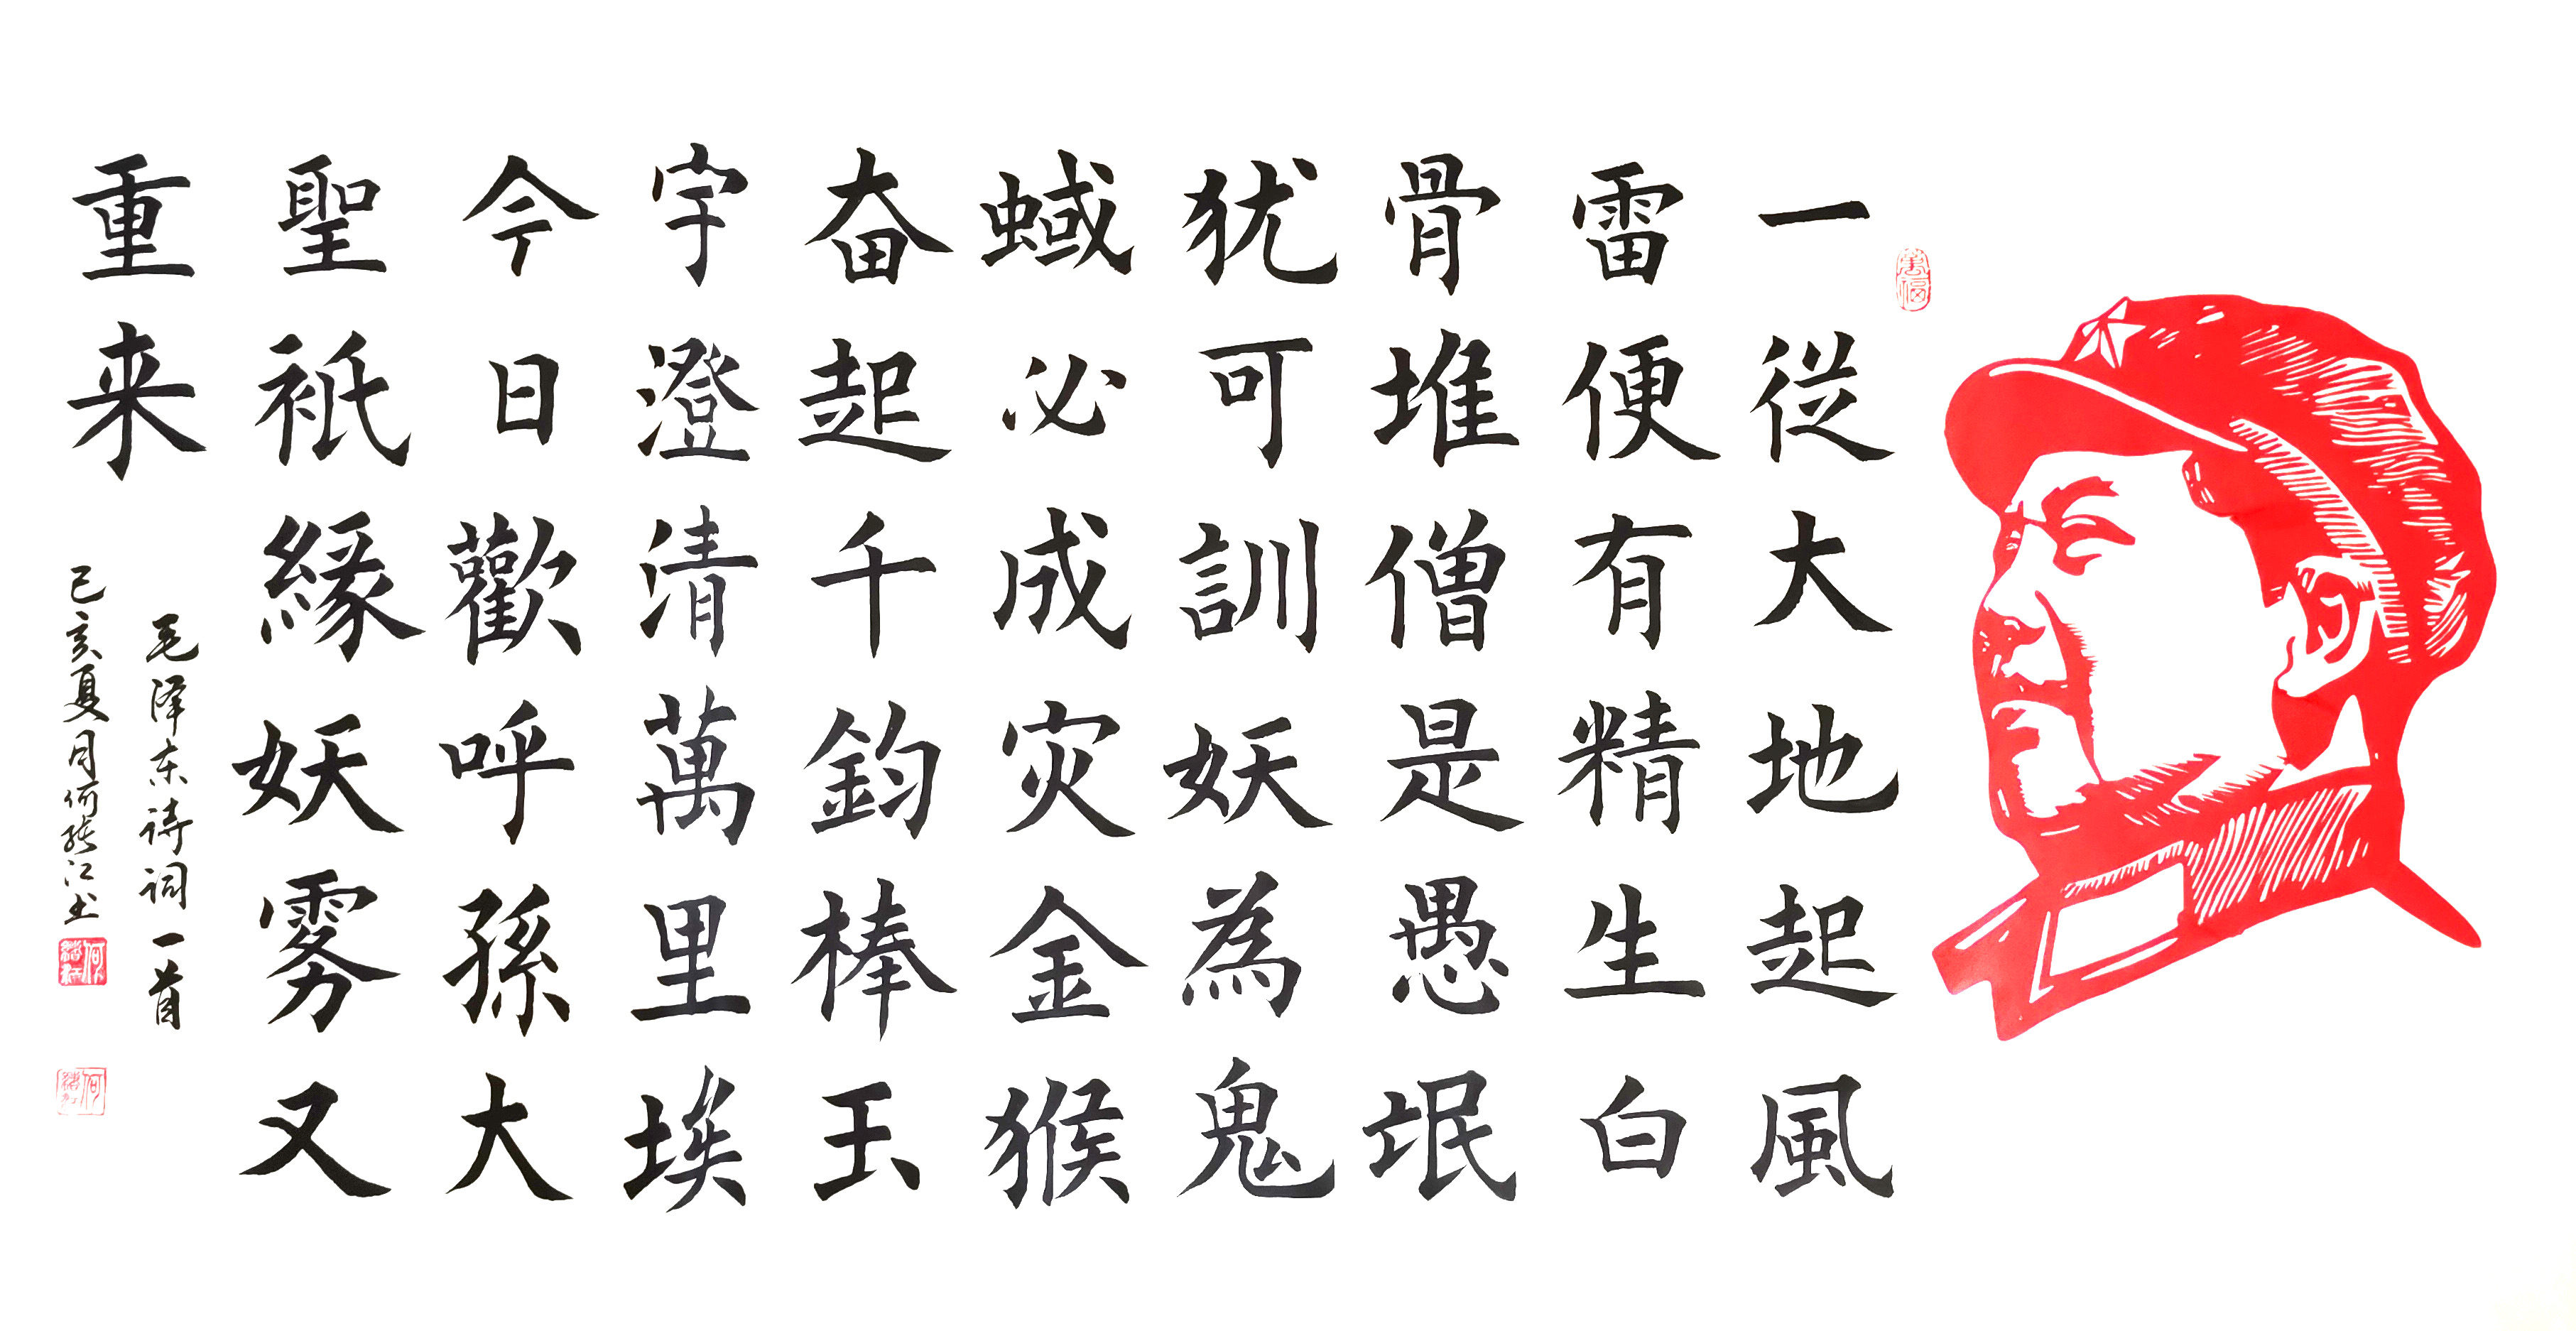 萬福
一從大地起風
雷便有精生白
骨堆僧是愚氓
犹可訓妖為鬼
蜮必成灾金猴
奋起千鈞棒玉
宇澄清萬里埃
今日歡呼孫大
聖衹緣妖雾又
重来
毛泽东诗词一首
己亥夏月何江书